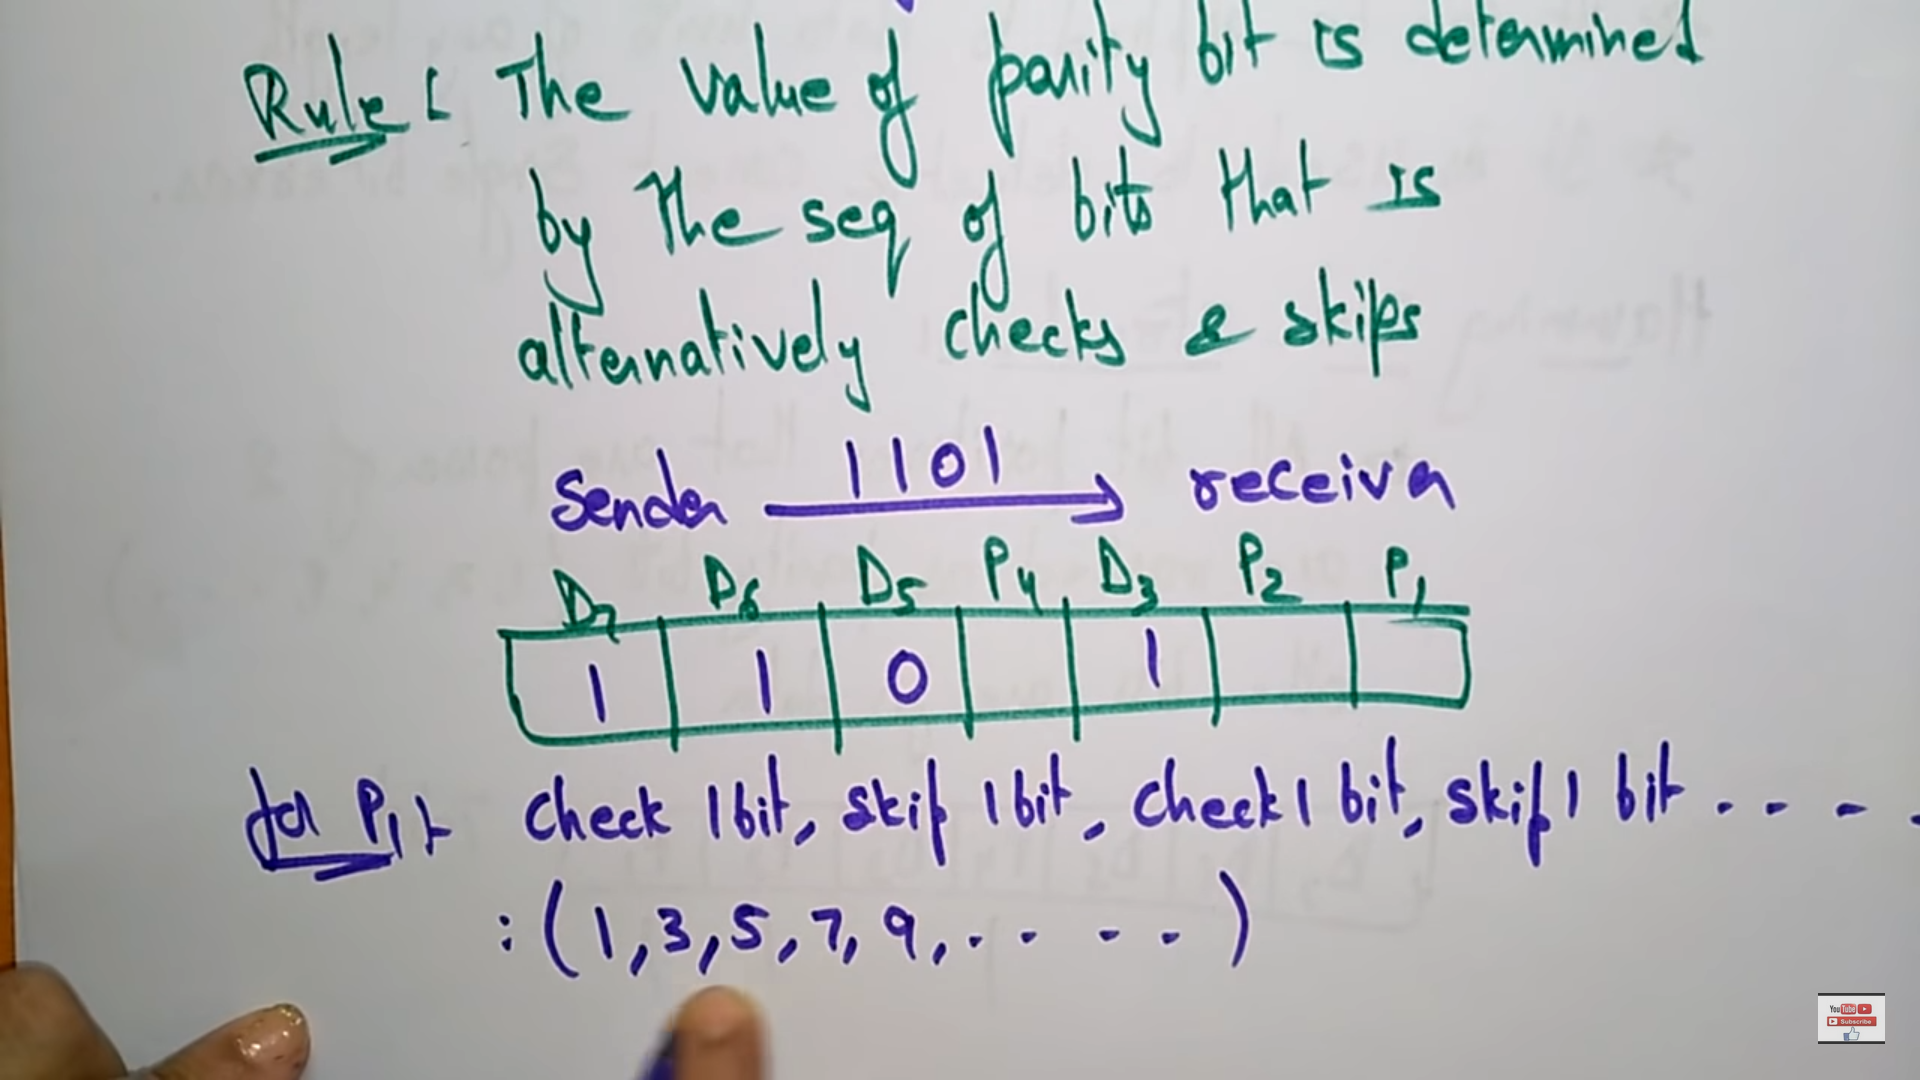 Rule: The value of parity bit is determined
by the seq of bits that is
alternatively checks & skips
Sender 1101 receiver
D7 D6 D5 P4 D3 P2 P1
1 1 0 1
for P1: check 1 bit, skip 1 bit, check 1 bit, skip 1 bit . . . .
: (1, 3, 5, 7, 9, . . . . )
YouTube
Subscribe